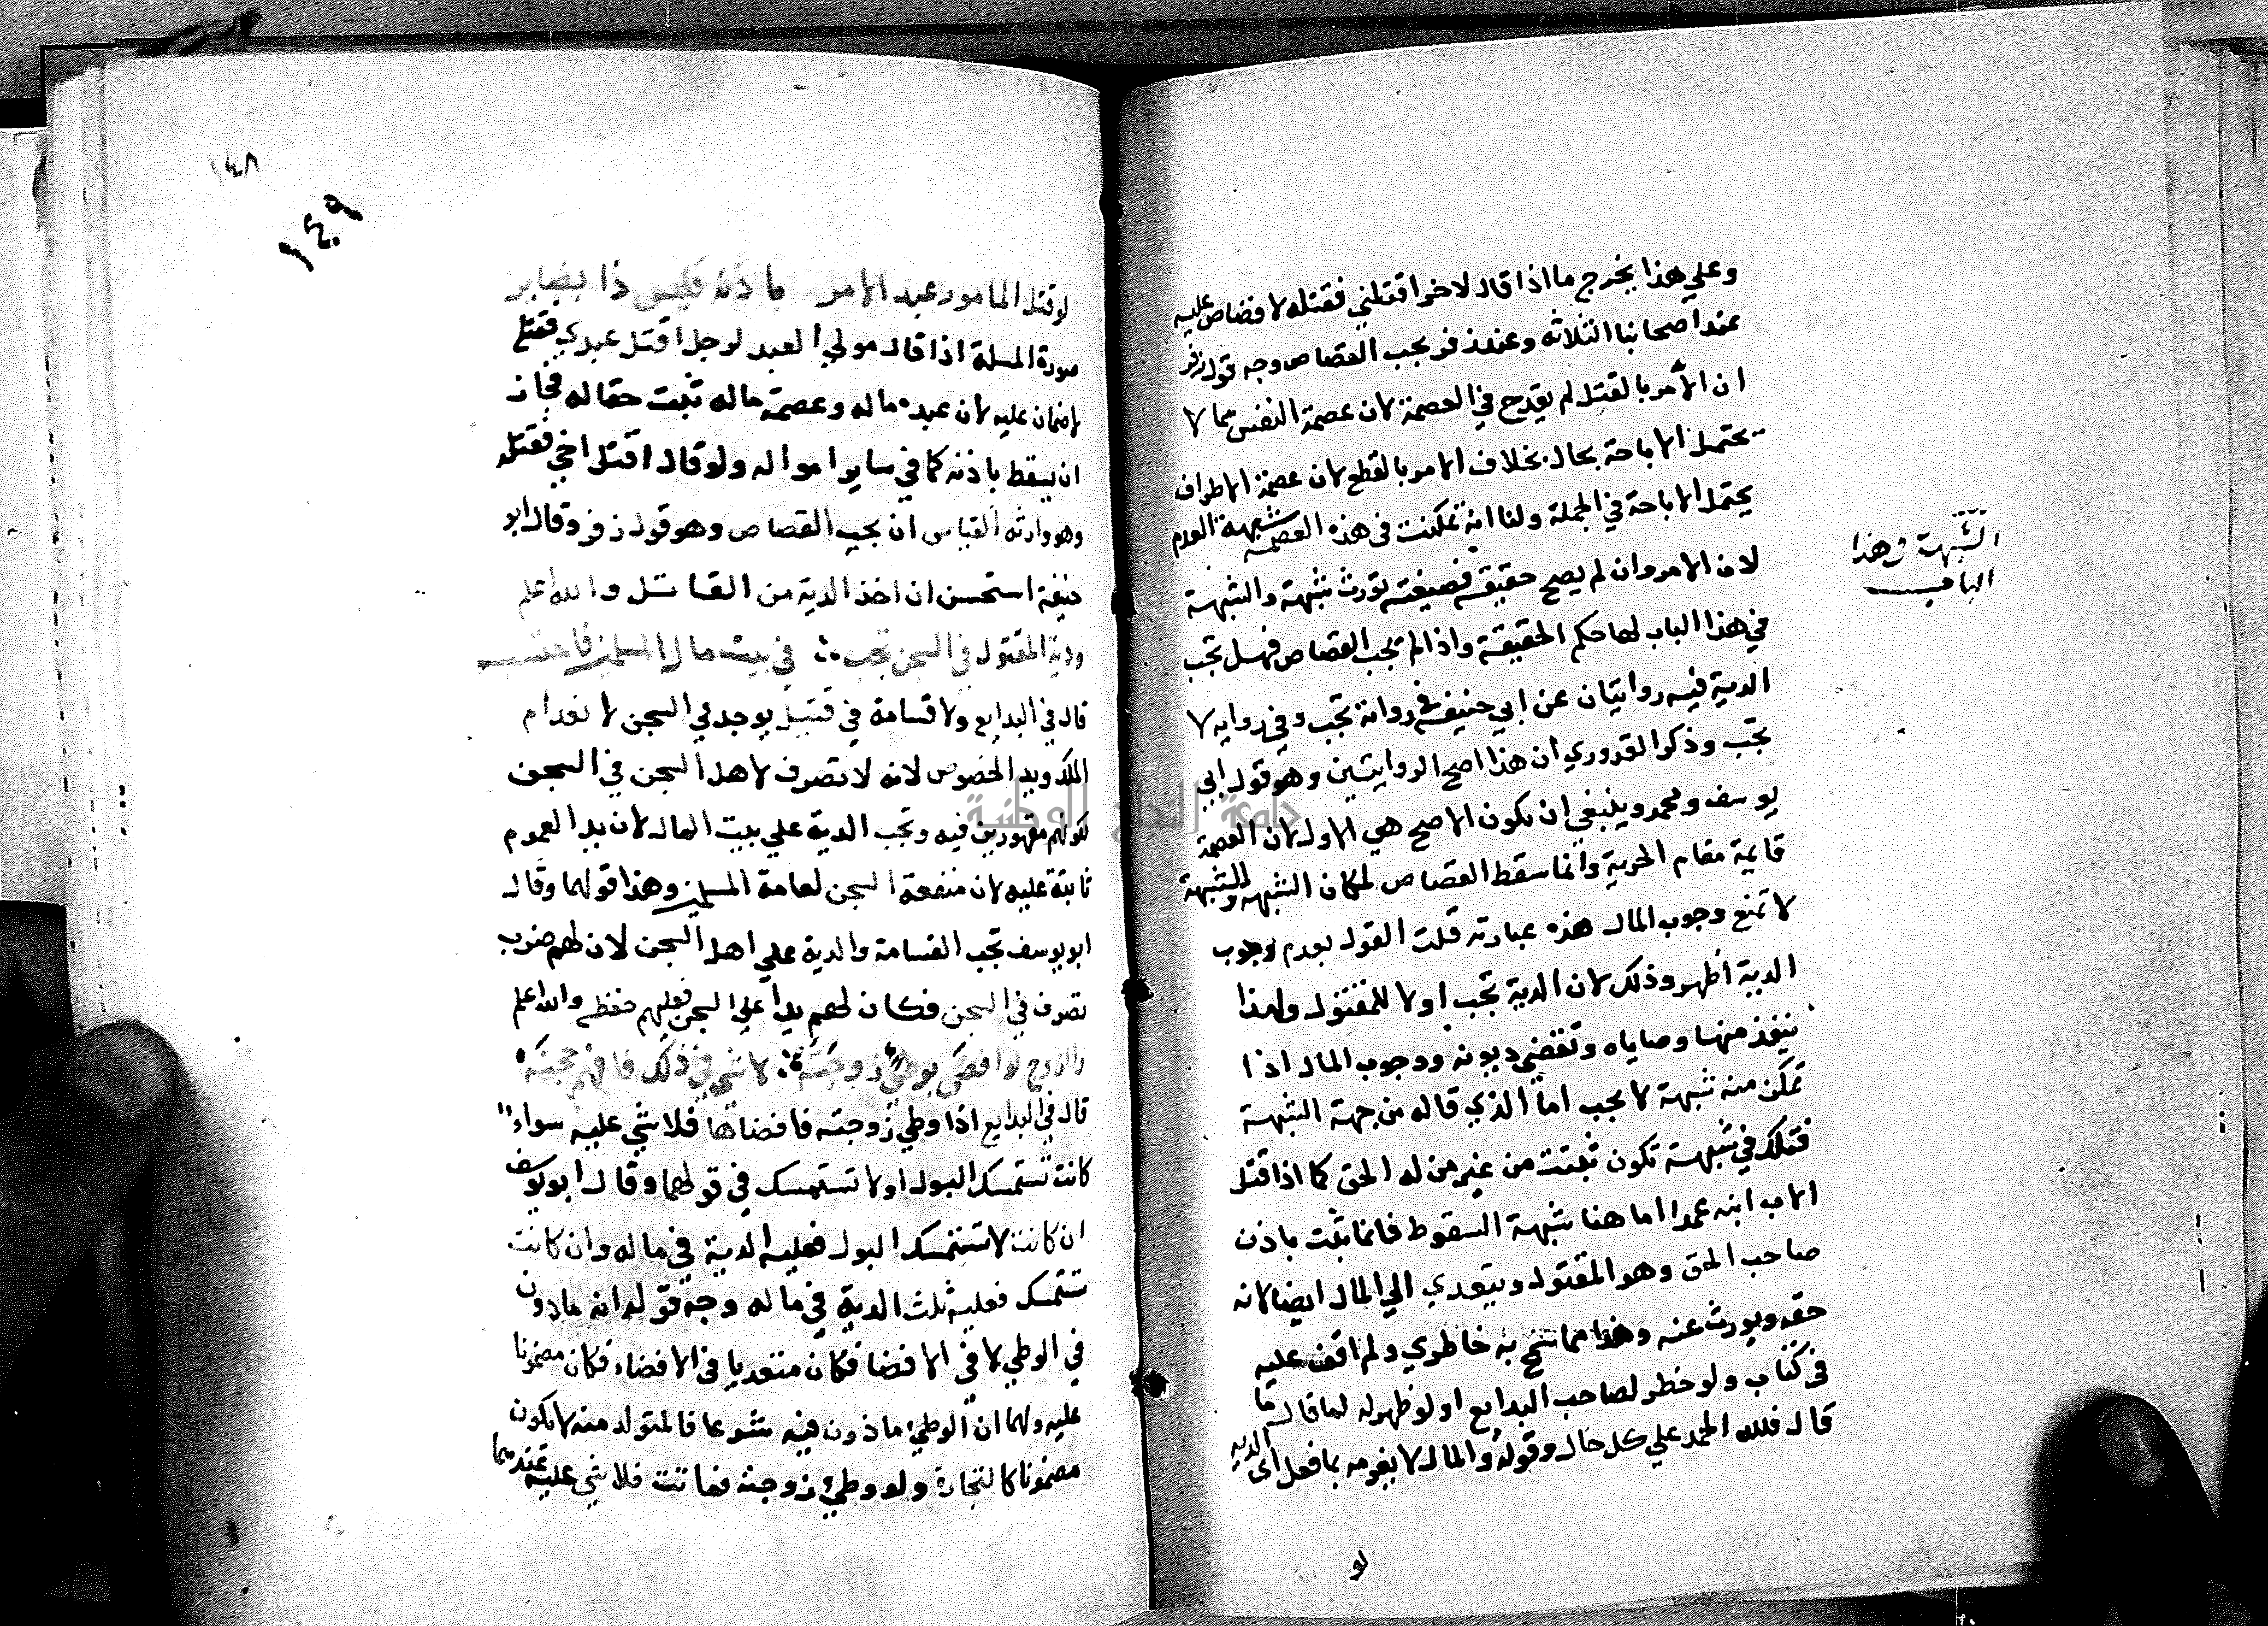 وعلي هذا يخرج ما اذا قال لاخر اقتلني فقتله لا قصاص عليه
عند اصحابنا الثلاثه وعند زفر يجب القصاص وجه قول زفر
ان الامر بالقتل لم يقدح في العصمة لان عصمة النفس مما لا
يحتمل الاباحة بحال بخلاف الامر بالقطع لان عصمة الاطراف
يحتمل الاباحة في الجملة ولنا انه تمكنت في هذه العصمة شبهة العدم
لان الامر وان لم يصح حقيقة فصيغته تورث شبهة والشبهة
في هذا الباب لها حكم الحقيقة واذا لم تجب القصاص فهل تجب
الدية فيه روايتان عن ابي حنيفة في رواية تجب وفي روايه لا
تجب وذكر القدوري ان هذا اصح الروايتين وهو قول ابي
يوسف ومحمد وينبغي ان يكون الاصح هي الاول لان العصمة
قايمة مقام الحرية وانما سقط القصاص لمكان الشبهة والشبهة
لا تمنع وجوب المال هذه عبارته قلت القول بعدم وجوب
الدية اظهر وذلك لان الدية تجب اولا للمقتول ولهذا
ينفذ منها وصاياه وتقضي ديونه ووجوب المال اذا
تمكن منه شبهة لا يجب اما الذي قاله من جهة الشبهة
فتلك في شبهة تكون ثبتت من غير من له الحق كما اذا قتل
الاب ابنه عمدا اما هنا شبهة السقوط فانما ثبت باذن
صاحب الحق وهو المقتول ويتعدي الي المال ايضا لانه
حقه ويورث عنه وهذا مما سنح به خاطري ولم اقف عليه
في كتاب ولو خطر لصاحب البدايع او لو ظهر له لما قال ما
قال فلله الحمد علي كل حال وقوله والمال لا يغرمه بما فعل اي الدية
الشبهة وهذا
الباب
لو
١٤٨
١٤٩
لو قتل المامور عبد الامر باذنه فليس ذا بضاير
صورة المسلة اذا قال مولي العبد لرجل اقتل عبدي فقتله
لا ضمان عليه لان عبده ماله وعصمة ماله ثبت حقا له فجاز
ان يسقط باذنه كما في ساير امواله ولو قال اقتل اخي فقتله
وهو وارثه القياس ان يجب القصاص وهو قول زفر وقال ابو
حنيفة استحسن ان اخذ الدية من القاتل والله اعلم
ودية المقتول في السجن تجب في بيت مال المسلمين
قال في البدايع ولا قسامة في قتيل يوجد في السجن لانعدام
الملك ويد الخصوص لانه لا تصرف لاهل السجن في السجن
لكونهم مقهورين فيه وتجب الدية علي بيت المال لان يد العموم
ثابتة عليه لان منفعة السجن لعامة المسلمين وهذا قولهما وقال
ابو يوسف تجب القسامة والدية علي اهل السجن لان لهم ضرب
تصرف في السجن فكان لهم يدا علي السجن فعليهم حفظه والله اعلم
والزوج لو افضي بوطي زوجته لا شي في ذلك
قال في البدايع اذا وطي زوجته فافضاها فلا شي عليه سواء
كانت تستمسك البول او لا تستمسك في قولهما وقال ابو يوسف
ان كانت لا تستمسك البول فعليه الدية في ماله وان كانت
تستمسك فعليه ثلث الدية في ماله وجه قوله انه ماذون
في الوطي لا في الافضا فكان متعديا في الافضاء فكان مضمونا
عليه ولهما ان الوطي ماذون فيه شرعا فالمتولد منه لا يكون
مضمونا كالتجارة ولو وطي زوجته فماتت فلا شي عليه عندهما